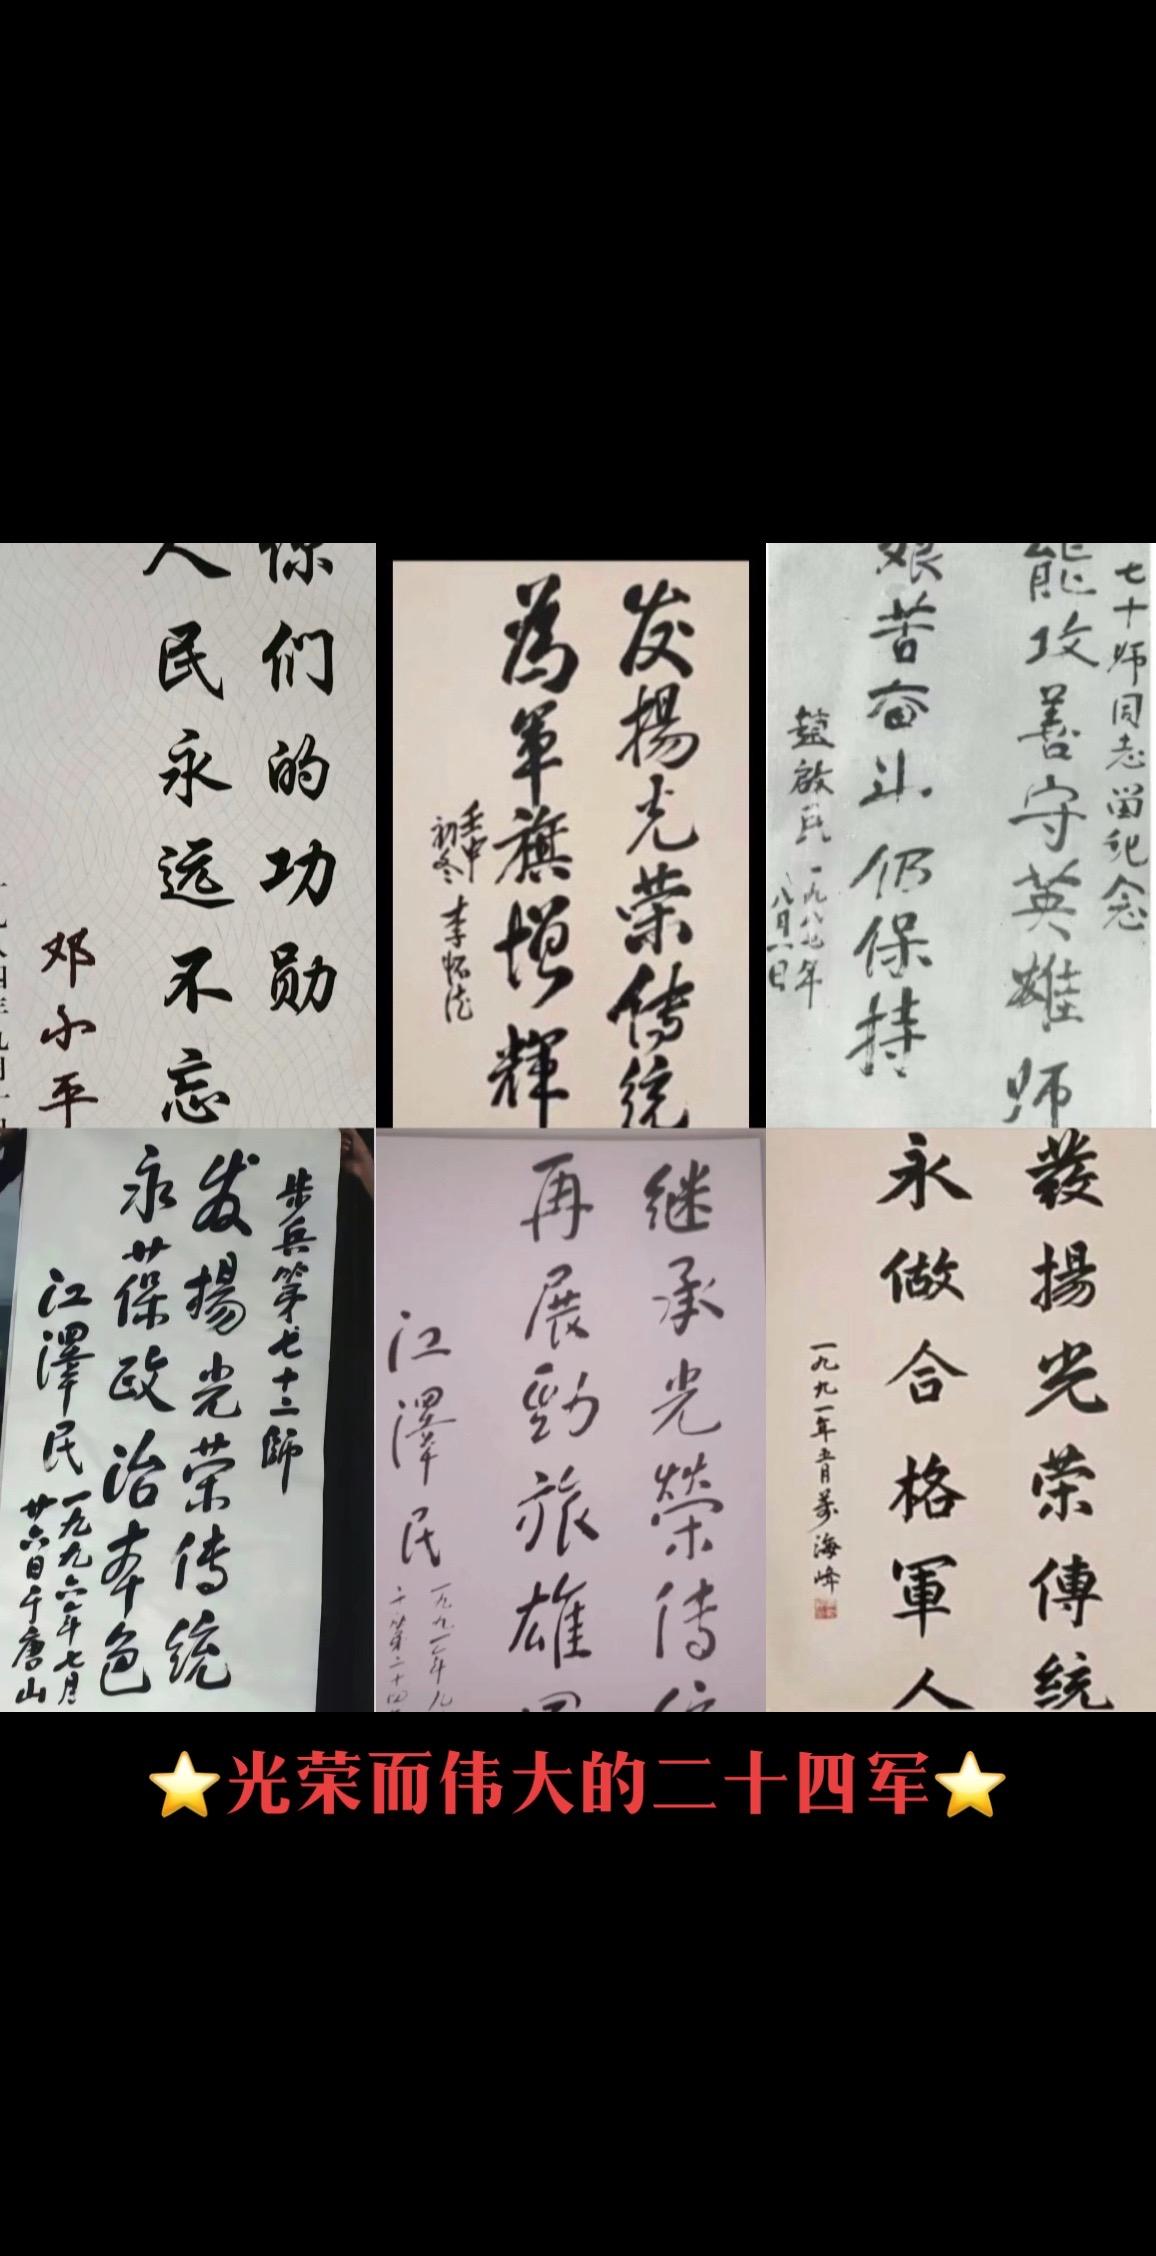 你们的功勋
人民永远不忘
邓小平
发揚光荣传统
為軍旗增輝
壬申
初冬 李怀法
七十师同志留纪念
能攻善守英雄师
艰苦奋斗仍保持
趙啟民 一九八七年
八月一日
步兵第七十二師
发揚光荣传统
永葆政治本色
江澤民 一九九六年七月
廿六日于唐山
继承光榮传统
再展勁旅雄
江澤民
發揚光荣傳統
永做合格軍人
一九九一年 海峰
⭐光荣而伟大的二十四军⭐